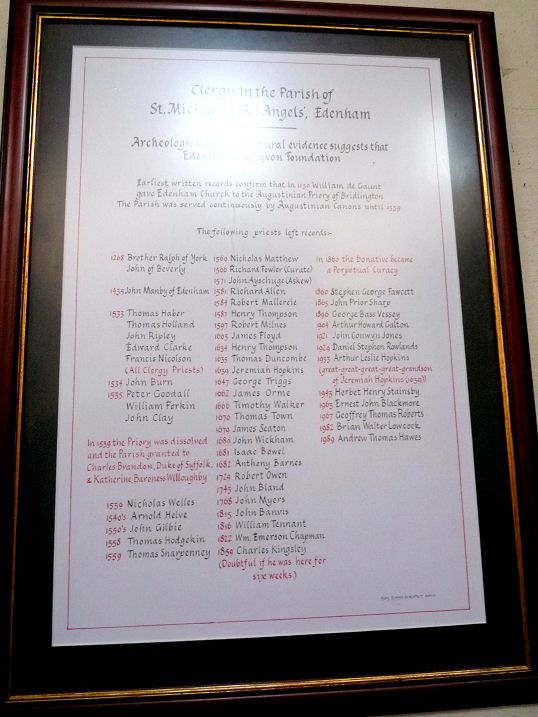 Clergy in the Parish of
St. Michael & All Angels', Edenham
Archeological & evidence suggests that
Saxon Foundation
Earliest written records confirm that in 1130 William de Gaunt
gave Edenham Church to the Augustinian Priory of Bridlington
The Parish was served continuously by Augustinian Canons until 1539
The following priests left records:-
1268 Brother Ralph of York
John of Beverly
1435 John Manby of Edenham
1533 Thomas Haber
Thomas Holland
John Ripley
Edward Clarke
Francis Nicolson
(All Clergy Priests)
1534 John Burn
1535 Peter Goodall
William Ferkin
John Clay
In 1539 the Priory was dissolved
and the Parish granted to
Charles Brandon, Duke of Suffolk,
& Katherine Baroness Willoughby
1539 Nicholas Welles
1540's Arnold Helve
1550's John Gilbie
1558 Thomas Hodgekin
1559 Thomas Sharpenney
1560 Nicholas Matthew
1566 Richard Fowler (Curate)
1571 John Ayschuge (Askew)
1581 Richard Allen
1584 Robert Mallereie
1587 Henry Thompson
1597 Robert Milnes
1603 James Floyd
1634 Henry Thompson
1635 Thomas Duncombe
1639 Jeremiah Hopkins
1647 George Triggs
1662 James Orme
1666 Timothy Walker
1670 Thomas Town
1679 James Seaton
1680 John Wickham
1681 Isaac Bowel
1682 Antheny Barnes
1729 Robert Owen
1745 John Bland
1768 John Myers
1815 John Banvis
1816 William Tennant
1822 Wm. Emerson Chapman
1859 Charles Kingsley
(Doubtful if he was here for
six weeks)
In 1860 the Donative became
a Perpetual Curacy
1860 Stephen George Fawcett
1865 John Prior Sharp
1896 George Bass Vessey
1904 Arthur Howard Galton
1921 John Conwyn Jones
1929 Daniel Stephen Rowlands
1933 Arthur Leslie Hopkins
(great-great-great-great-grandson
of Jeremiah Hopkins (1639))
1943 Herbet Henry Stainsby
1963 Ernest John Blackmore
1967 Geoffrey Thomas Roberts
1982 Brian Walter Lowcock
1989 Andrew Thomas Hawes